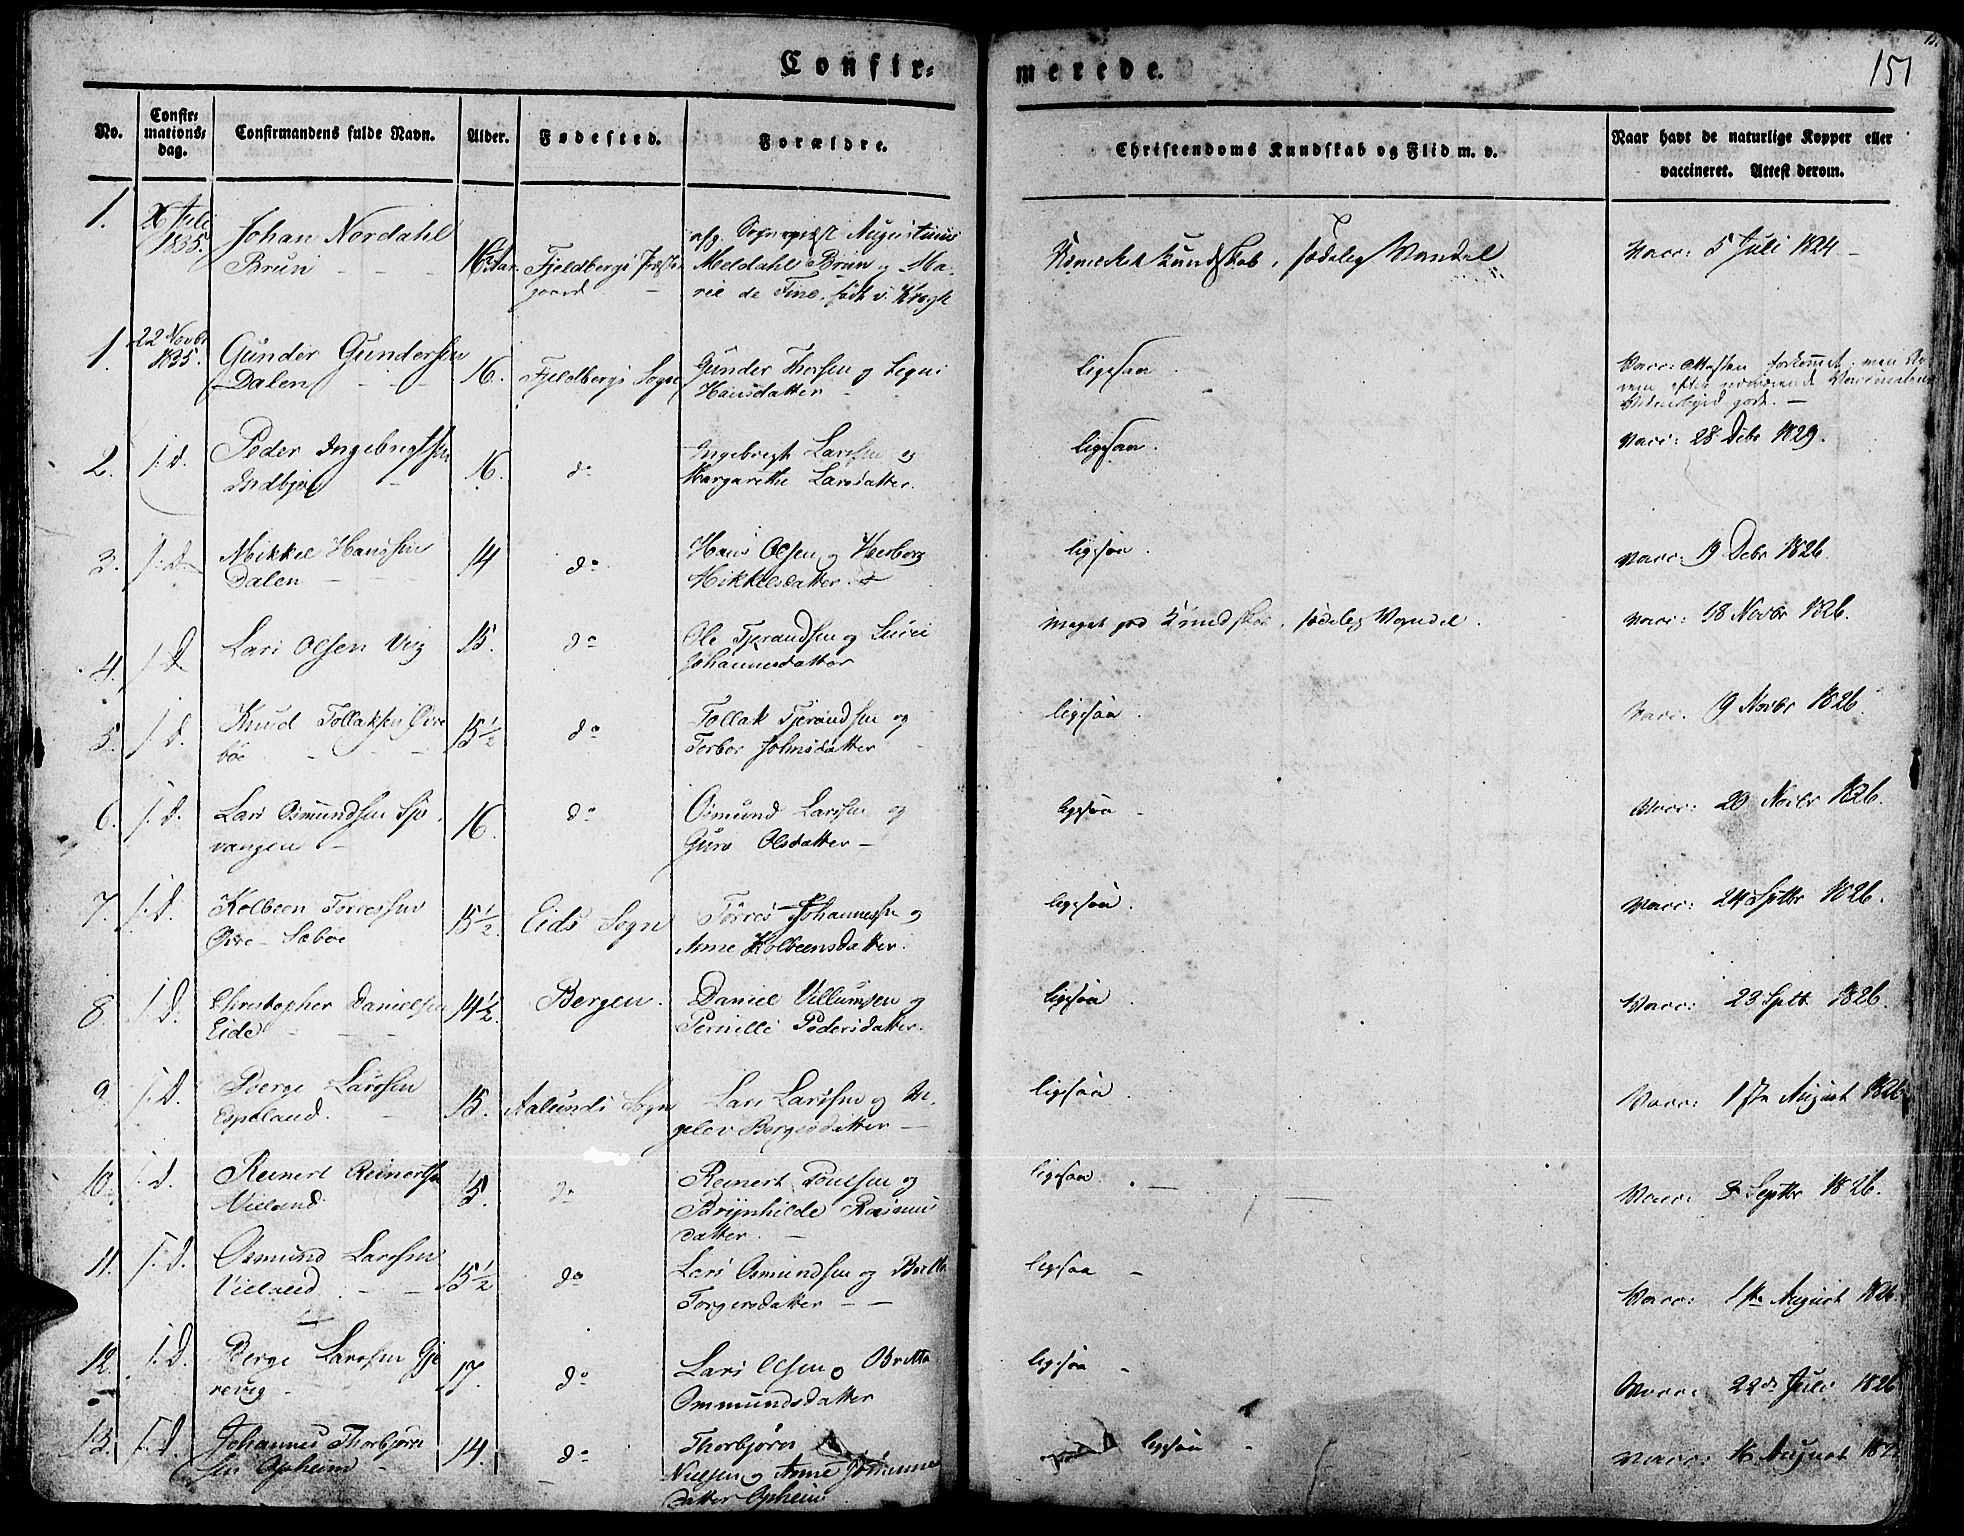 Confir= merede.
151
No.
Confir=
mations=
dag.
Confirmandens fulde Navn.
Alder.
Fødested.
Forældre.
Christendoms Kundskab og Flid m. v.
Naar havt de naturlige Kopper eller
vaccineret. Attest derom.
1.
Juli
1835.
Johan Nordahl
Brun
Fjeldbergs
gaard
afg. Sognepræst Augustinus
Meldahl Brun og Ma-
rie de Fine, født v. Krogh
Kundskab, sædelig Vandel
Vacc: 5 Juli 1824
1.
22 Novbr
1835.
Gunder Gundersen
Dalen
16.
Fjeldbergs Sogn
Gunder Thorsen og
Hansdatter
ligesaa
Vacc: Attesten forkommet, men
2.
I. D.
Peder Ingebrigtsen
16.
do
Ingebrigt Larssen og
Margarethe Larsdatter.
ligesaa.
Vacc: 28 Debr 1829.
3.
I. D.
Mikkel Hanssen
Dalen
14
do
Hans Olsen og
Mikkelsdatter.
ligesaa.
Vacc: 19 Debr 1826.
4.
I D
Lars Olsen Vig
15.
do
Ole Tjerandsen og
Johannesdatter
Meget god Kundskab, sædelig Vandel.
Vacc: 18 Novbr 1826.
5.
I D.
Knud Tollaksen Øvre
bøe
15½
do
Tollak Tjerandsen og
Torbor Johnsdatter
ligesaa.
Vacc: 9 Novbr 1826.
6.
I. D.
Lars Osmundsen Sjo
vangen
16.
do
Osmund Larssen og
Guro Olsdatter
ligesaa
Vacc: 20 Novbr 1826.
7.
I. D.
Kolbeen Torressen
Øvre Sæbøe
15½
Eids Sogn
Torres Johannessen og
Anne Kolbeensdatter.
ligesaa.
Vacc: 24 Septbr 1826.
8.
I D.
Christopher Danielsen
Eide
14½
Bergen.
Daniel Villumsen og
Pernille Pedersdatter.
ligesaa.
Vacc: 23 Septb. 1826.
9.
I. D.
Berge Larssen
Espeland.
15.
Aalunds Sogn
Lars Larssen og
Bergesdatter
ligesaa.
Vacc: 1ste August 1826
10.
I. D.
Reinert Reinertsen
Vieland
15.
do
Reinert Poulsen og
Brynhilde Rasmus
datter.
ligesaa.
Vacc: 3 Septbr 1826.
11.
I. D.
Osmund Larssen
Vieland
15½
do
Lars Osmundsen og Britta
Torgersdatter
ligesaa
Vacc: 1ste August 1826.
12.
I. D.
Berge Larssen Gje
revig
17.
do
Lars Olsen og Britta
Ommundsdatter
ligesaa
Vacc: 22de Juli 1826
13.
I. D.
Johannes Thorbjørn
sen Opheim
14.
do
Thorbjørn
Nielsen og Anne Johannes
datter Opheim.
ligesaa
Vacc: 16 August